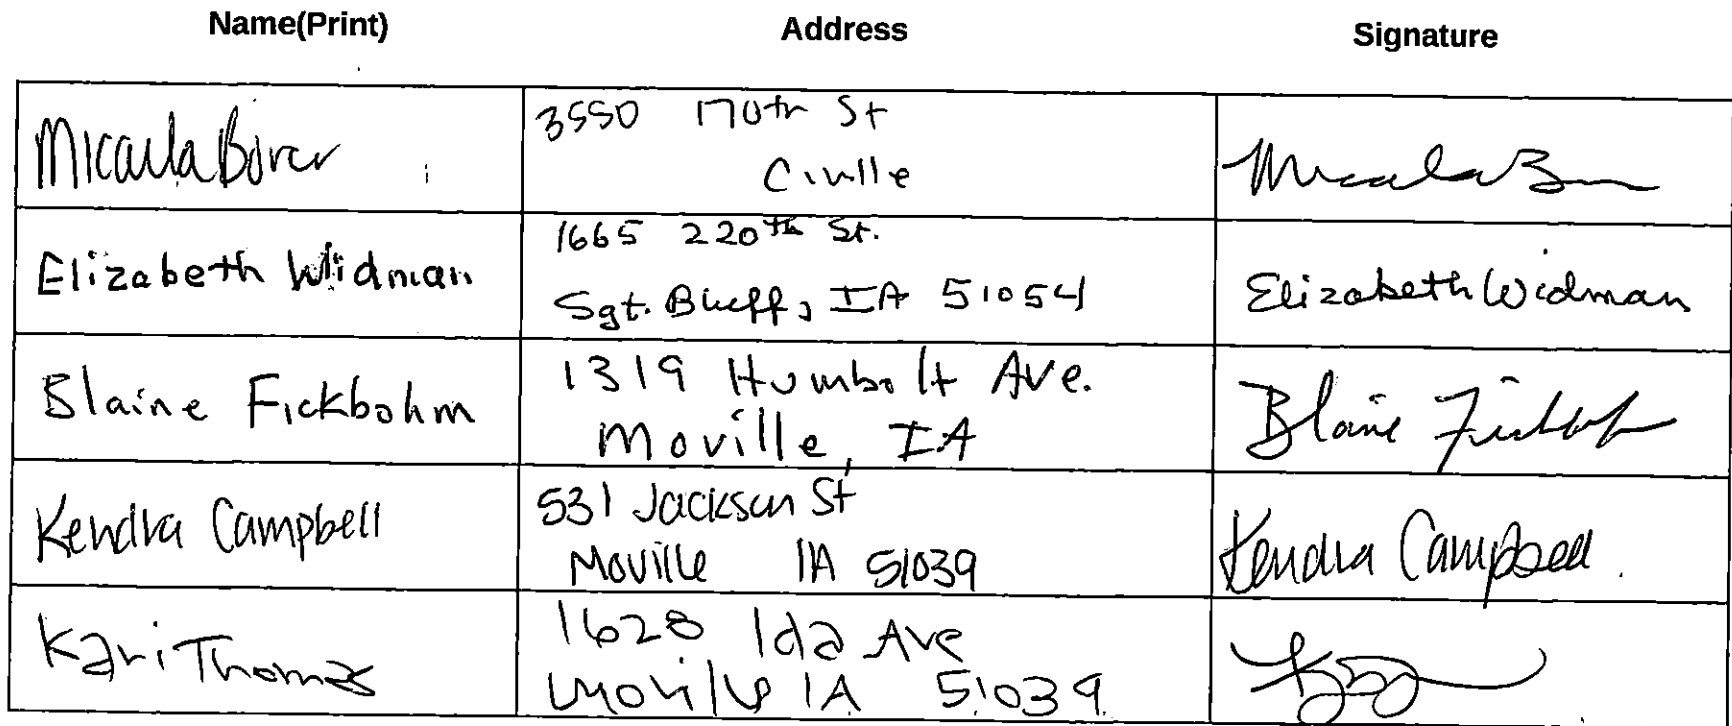 Name(Print) Address Signature
Micaela Borer 3550 170th St
C'ville
Micaela
Elizabeth Widman 1665 220th St.
Sgt. Bluff, IA 51054
Elizabeth Widman
Blaine Fickbohm 1319 Humbolt Ave.
Moville, IA
Blaine
Kendra Campbell 531 Jackson St
Moville IA 51039
Kendra Campbell
Kari Thomas 1628 Ida Ave
Moville IA 51039